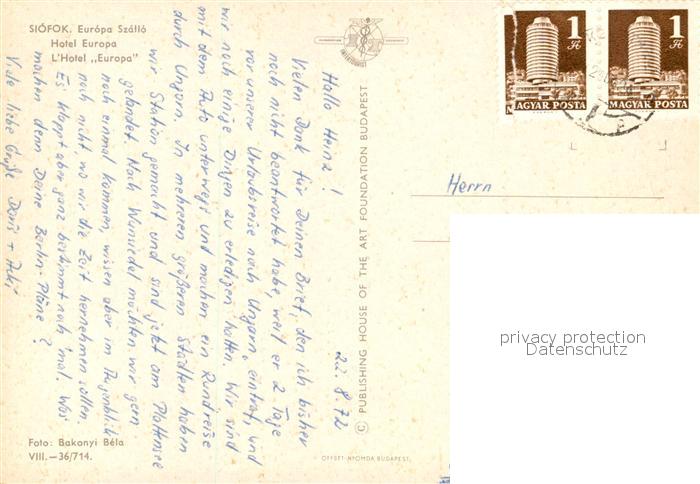 SIÓFOK, Európa Szálló
Hotel Europa
L'Hotel „Europa"
Hallo Heinz!
22.8.72
Vielen Dank für Deinen Brief, den ich bisher
noch nicht beantwortet habe, weil er 2 Tage
vor unserer Urlaubsreise nach Ungarn, eintraf, und
wir noch einige Dinge zu erledigen hatten. Wir sind
mit dem Auto unterwegs und machen ein Rundreise
durch Ungarn. In mehreren größeren Städten haben
wir Station gemacht und sind jetzt am Plattensee
gelandet. Nach Wunsiedel möchten wir gern
noch einmal kommen, wissen aber im Augenblick
noch nicht wo wir die Zeit hernehmen sollen.
Es klappt aber ganz bestimmt noch 'mal. Was
machen denn Deine Berlin-Pläne?
Viele liebe Grüße Doris +
Foto: Bakonyi Béla
VIII.—36/714.
© PUBLISHING HOUSE OF THE ART FOUNDATION BUDAPEST
OFFSET-NYOMDA BUDAPEST
1 Ft
MAGYAR POSTA
1 Ft
MAGYAR POSTA
Herrn
privacy protection
Datenschutz